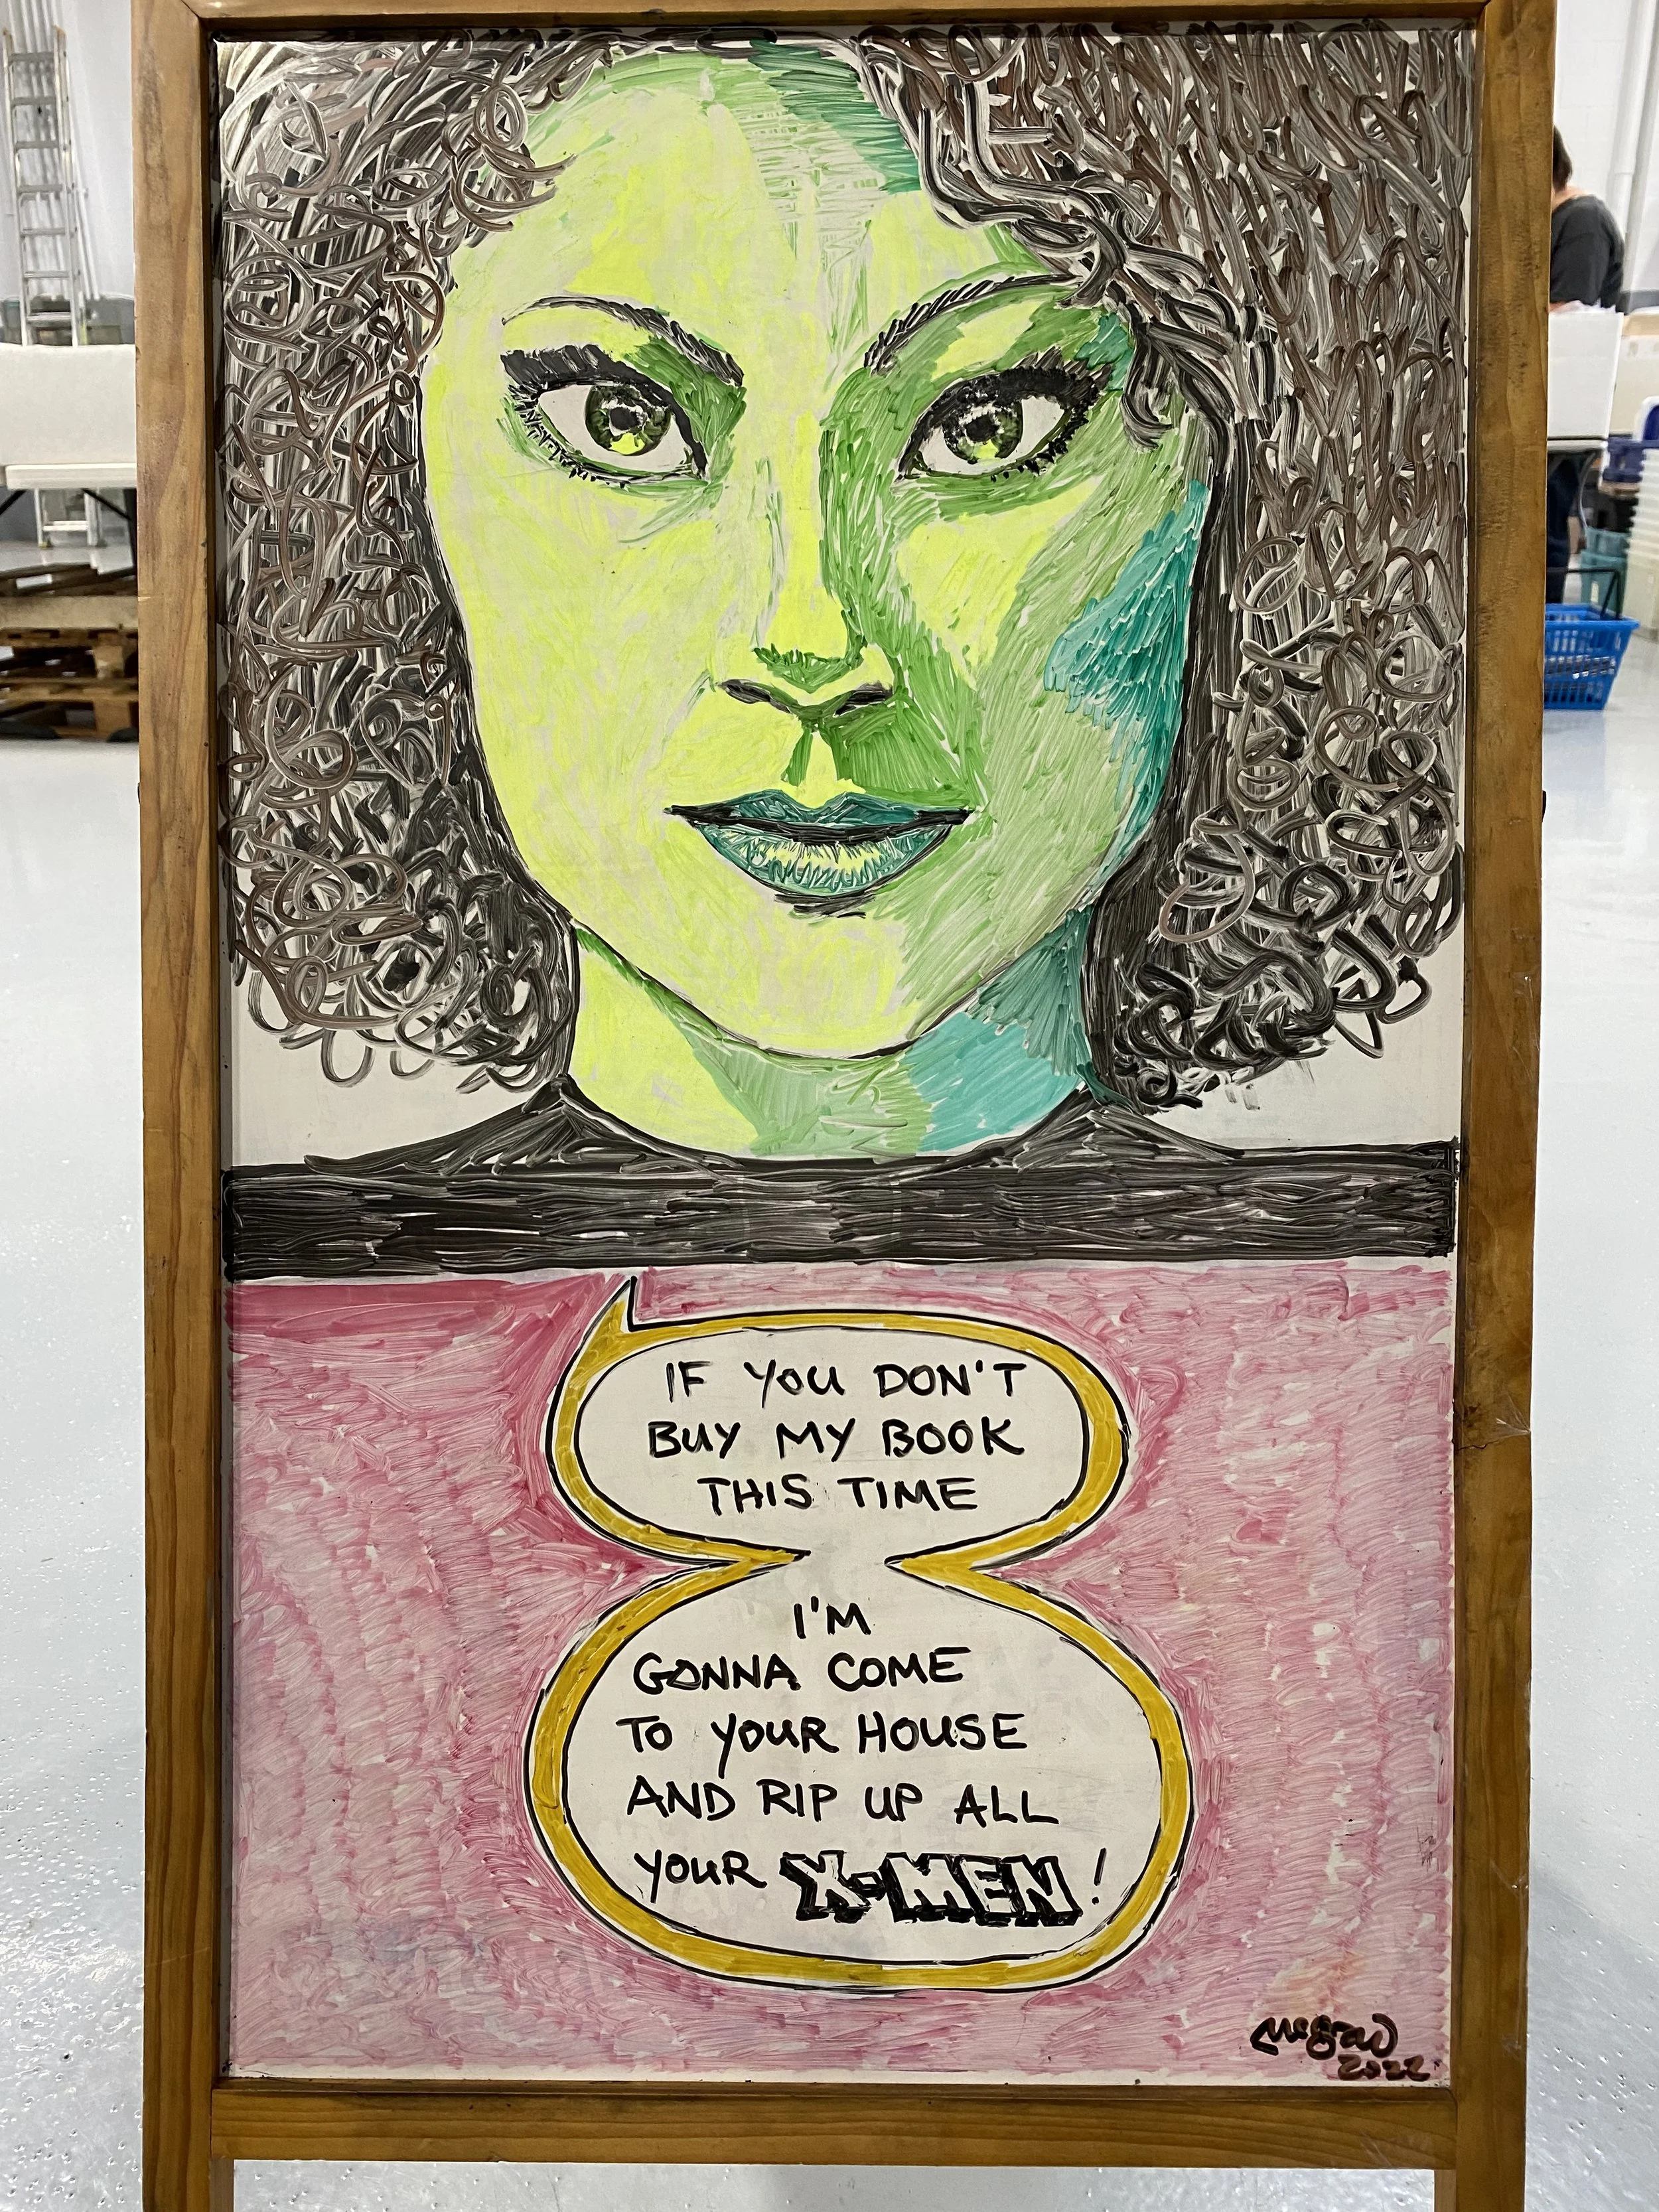 IF YOU DON'T
BUY MY BOOK
THIS TIME
I'M
GONNA COME
TO YOUR HOUSE
AND RIP UP ALL
YOUR X-MEN!
McGraw
2022